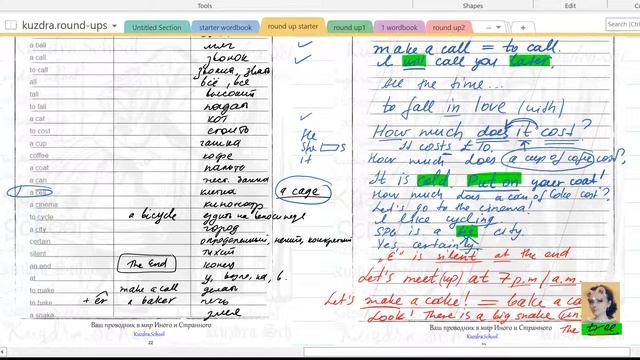 kuzdra.round-ups
Untitled Section
starter workbook
round up starter
round up1
1 workbook
round up2
Search (Ctrl
a ball
миг
a call
звонок
to call
звонить, звать
all
всё, все
tall
высокий
to fall
падать
a cat
кот
to cost
стоить
a cup
чашка
coffee
кофе
a coat
пальто
a can
жест. банка
a cell
клетка
a cage
a cinema
кинотеатр
to cycle
a bicycle
ездить на велосипеде
a city
город
certain
определенный, некий, конкретный
silent
тихий
an end
The End
конец
at
у, возле, на, в.
to make
make a call
делать
to bake
+ er
a baker
печь
a snake
змея
Ваш проводник в мир Иного и Странного
Kuzdra.School
22
make a call = to call.
I will call you later.
All the time...
to fall in love (with)
How much does it cost?
He
She
s
it
It costs £ 10.
How much does a cup of cofee cost?
It is cold. Put on your coat!
How much does a can of Coke cost?
Let's go to the cinema!
I like cycling.
SPB is a big city.
Yes, certainly.
"E" is silent at the end
Let's meet (up) at 7 p.m / a.m.
Let's make a cake! = bake a ca
Look! There is a big snake
The tree.
Ваш проводник в мир Иного и Странного
Kuzdra.School